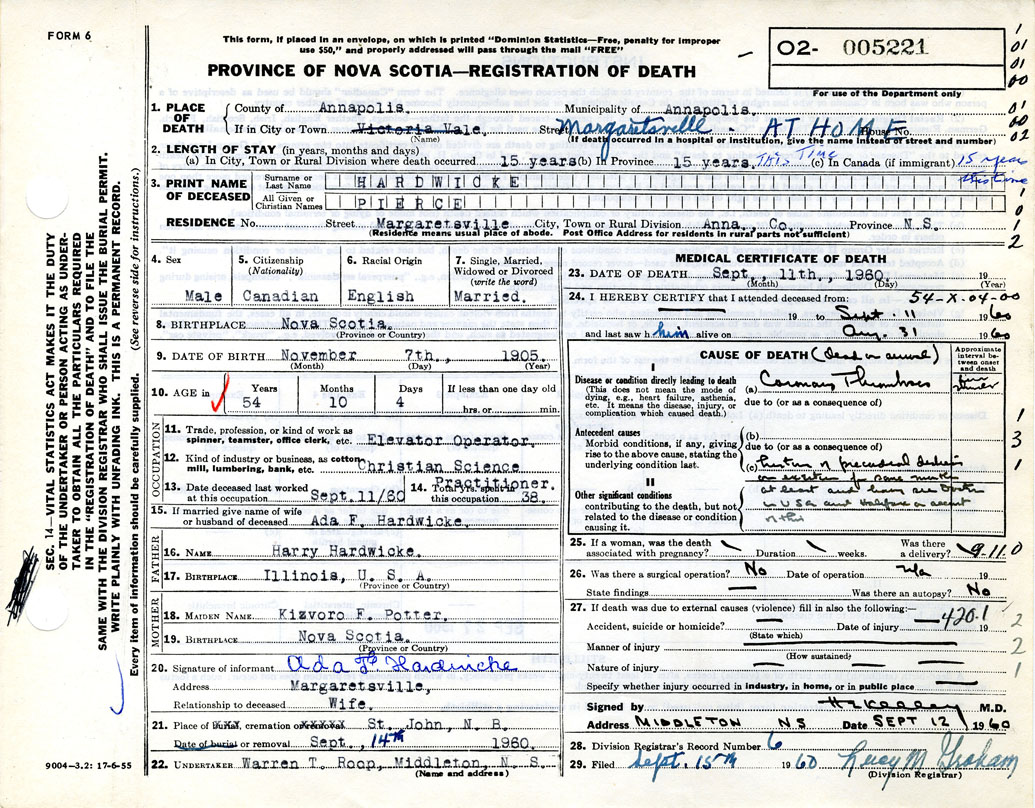 FORM 6
This form, if placed in an envelope, on which is printed "Dominion Statistics—Free, penalty for improper
use $50," and properly addressed will pass through the mail "FREE"
PROVINCE OF NOVA SCOTIA—REGISTRATION OF DEATH
02- 005221
For use of the Department only
1
01
01
00
01
00
02
1. PLACE OF DEATH
County of Annapolis. Municipality of Annapolis.
If in City or Town Victoria Vale. Street Margaretsville - AT HOME House No.
(Name) (If death occurred in a hospital or institution, give the name instead of street and number)
2. LENGTH OF STAY (in years, months and days)
(a) In City, Town or Rural Division where death occurred 15 years (b) In Province 15 years. This Time (c) in Canada (if immigrant) 15 years
this time
3. PRINT NAME OF DECEASED
Surname or Last Name HARDWICKE
All Given or Christian Names PIERCE
RESIDENCE No. Street Margaretsville City, Town or Rural Division Anna. Co., Province N S.
(Residence means usual place of abode. Post Office Address for residents in rural parts not sufficient)
1
0
1
2
SEC. 14—VITAL STATISTICS ACT MAKES IT THE DUTY
OF THE UNDERTAKER OR PERSON ACTING AS UNDER-
TAKER TO OBTAIN ALL THE PARTICULARS REQUIRED
IN THE "REGISTRATION OF DEATH" AND TO FILE THE
SAME WITH THE DIVISION REGISTRAR WHO SHALL ISSUE THE BURIAL PERMIT.
WRITE PLAINLY WITH UNFADING INK. THIS IS A PERMANENT RECORD.
Every item of information should be carefully supplied. (See reverse side for instructions.)
4. Sex
Male
5. Citizenship
(Nationality)
Canadian
6. Racial Origin
English
7. Single, Married,
Widowed or Divorced
(write the word)
Married.
8. BIRTHPLACE Nova Scotia.
(Province or Country)
9. DATE OF BIRTH November 7th., 1905.
(Month) (Day) (Year)
10. AGE in
Years Months Days If less than one day old
54 10 4 hrs. or min.
OCCUPATION
11. Trade, profession, or kind of work as
spinner, teamster, office clerk, etc. Elevator Operator.
12. Kind of industry or business, as cotton
mill, lumbering, bank, etc. Christian Science
Practitioner.
13. Date deceased last worked
at this occupation Sept.11/60
14. Total yrs. spent in
this occupation 38.
15. If married give name of wife
or husband of deceased Ada F. Hardwicke.
FATHER
16. NAME Harry Hardwicke.
17. BIRTHPLACE Illinois, U. S. A.
(Province or Country)
MOTHER
18. MAIDEN NAME: Kizvoro F. Potter.
19. BIRTHPLACE Nova Scotia.
(Province or Country)
20. Signature of informant Ada F. Hardwicke
Address Margaretsville,
Relationship to deceased Wife.
21. Place of burial, cremation or removal St. John, N. B.
Date of burial or removal Sept., 14th 1960.
22. UNDERTAKER Warren T. Roop, Middleton, N. S.
(Name and address)
9004—3.2: 17-6-55
MEDICAL CERTIFICATE OF DEATH
23. DATE OF DEATH Sept., 11th., 1960. 19
(Month) (Day) (Year)
24. I HEREBY CERTIFY that I attended deceased from: 54-X-04-00
19 to Sept. 11 1960
and last saw him alive on Aug. 31 1960
CAUSE OF DEATH (dead on arrival)
Approximate
interval be-
tween onset
and death
I
Disease or condition directly leading to death
(This does not mean the mode of
dying, e.g., heart failure, asthenia,
etc. It means the disease, injury, or
complication which caused death.)
(a) Coronary Thrombosis
due to (or as a consequence of)
Antecedent causes
Morbid conditions, if any, giving
rise to the above cause, stating the
underlying condition last.
(b)
due to (or as a consequence of)
(c) history of precordial
II
Other significant conditions
contributing to the death, but not
related to the disease or condition
causing it.
at least and
USA and Halifax on account
of this
1
3
1
25. If a woman, was the death
associated with pregnancy? Duration weeks. Was there
a delivery? 9-11.0
26. Was there a surgical operation? No Date of operation n/a 19
State findings Was there an autopsy? No
27. If death was due to external causes (violence) fill in also the following:—
420.1
Accident, suicide or homicide? Date of injury 19
(State which)
Manner of injury
(How sustained)
Nature of injury
Specify whether injury occurred in industry, in home, or in public place
2
2
2
1
Signed by M.D.
Address MIDDLETON NS Date SEPT 12 1960
28. Division Registrar's Record Number 6
29. Filed Sept. 15th 1960 Lucy M. Graham
(Division Registrar)